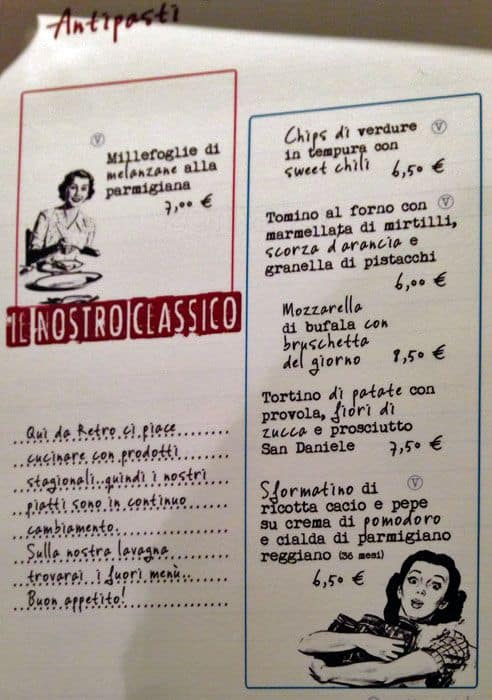 Antipasti
V
Millefoglie di
melanzane alla
parmigiana
7,00 €
IL NOSTRO CLASSICO
Qui da Retro ci piace
cucinare con prodotti
stagionali..quindi i nostri
piatti sono in continuo
cambiamento.
Sulla nostra lavagna
trovarai i fuori menù..
Buon appetito!
Chips di verdure V
in tempura con
sweet chili 6,50 €
Tomino al forno con V
marmellata di mirtilli,
scorza d'arancia e
granella di pistacchi
6,00 €
Mozzarella
di bufala con
bruschetta
del giorno 8,50 €
Tortino di patate con
provola, fiori di
zucca e prosciutto
San Daniele 7,50 €
Sformatino di V
ricotta cacio e pepe
su crema di pomodoro
e cialda di parmigiano
reggiano (36 mesi)
6,50 €